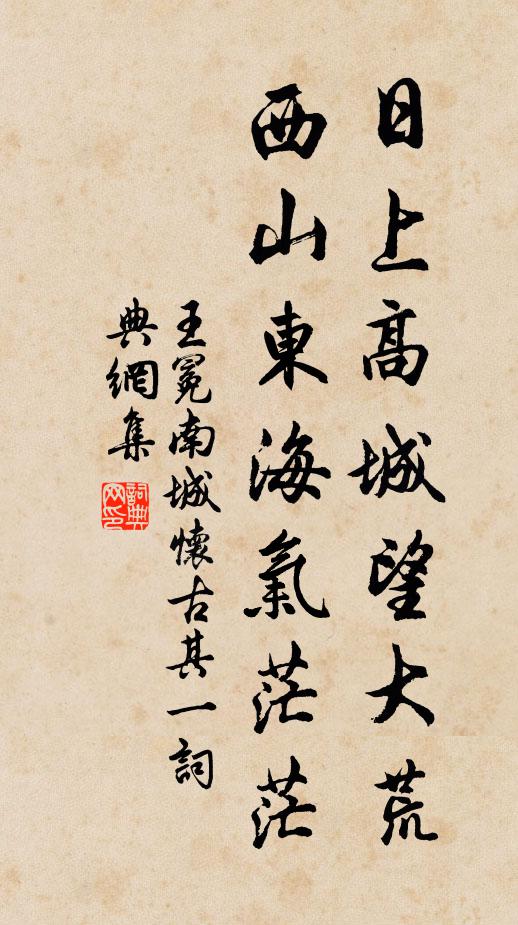 日上高城望大荒
西山東海氣茫茫
王冕南城懷古其一詞
典網集
詞典網印